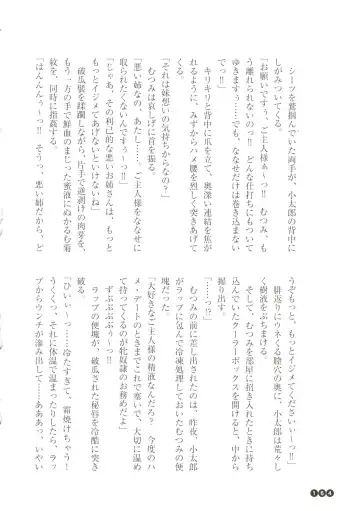 シーツを鷲掴んでいた両手が、小太郎の背中に
しがみついてくる。
「お願いです、ご主人様ぁ〜っ!! むつみ、も
う離れられないのっ!! どんな仕打ちにもつい
てゆきますぅ、でも、ななせだけは巻き込まない
でっ!!」
キリキリと背中に爪を立て、奥深い連結を焦が
れるように、みずからハメ腰を烈しく突きあげて
くる。
「それは妹想いの気持ちからなの?」
むつみは哀しげに首を振る。
「悪い姉なの、あたし……。ご主人様をななせに
取られたくないんですぅ〜〜っ!!」
「じゃあ、その利己的な悪いお姉さんは、もっと
もっとイジメてあげないといけないね」
破瓜襞を蹂躙しながら、片手で逆剥けの肉芽を、
もう一方の手で鮮血のまじった蜜液にぬかるむ菊
紋を、同時に指姦する。
「はんんんぅ〜っ!! そうっ、悪い姉だから、ど
うぞもっと、もっとイジメてくださいぃ〜っ!!」
緋返りにウネくる膣穴の奥に、小太郎は荒々し
く樹液をぶちまける。
そして、むつみを部屋に招き入れたときに持ち
込んでいたクーラーボックスを開けると、中から
掴り出す。
「……っ!?」
むつみの前に差し出されたのは、昨夜、小太郎
がラップに包んで冷凍処理しておいたむつみの便
塊だった。
「大好きなご主人様の精液なんだろ? 今度のハ
メ・デートのときまでこれで塞いで、大切に温め
て持ってくるのが牝奴隷のお務めだよ」
ずぷぷぷぷぅ〜っ。
ラップの便塊が、破瓜された秘唇を冷酷に突き
破る。
「ひいぃ〜っ……冷たすぎて、霜焼けちゃう!
うくくっ、それに体温で温まったりしたら、ラッ
プからウンチが滲み出して……あああっ、いやい
184